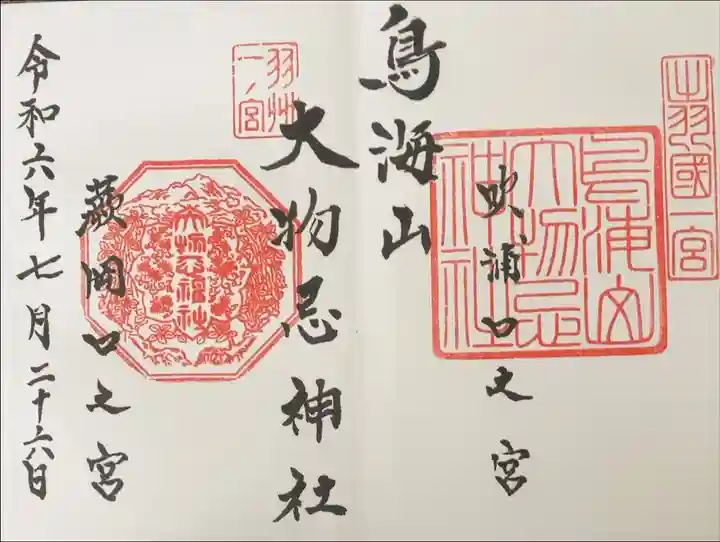 出羽國一宮
鳥海山大物忌神社
吹浦口之宮
鳥海山
大物忌神社
羽州一ノ宮
蕨岡口之宮
令和六年七月二十六日